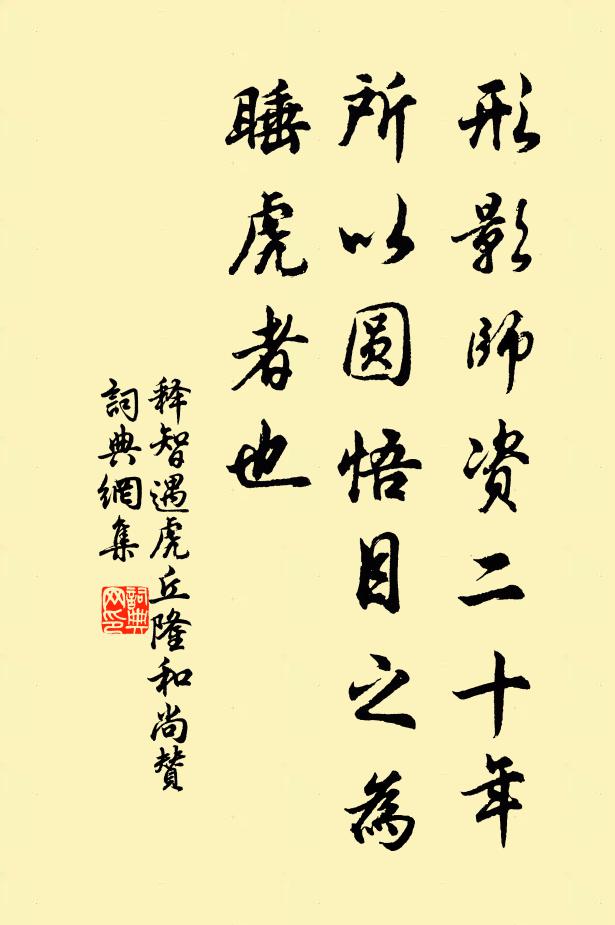 形影師資二十年
所以圓悟目之為
睡虎者也
釋智遇虎丘隆和尚贊
詞典網集
詞典網印